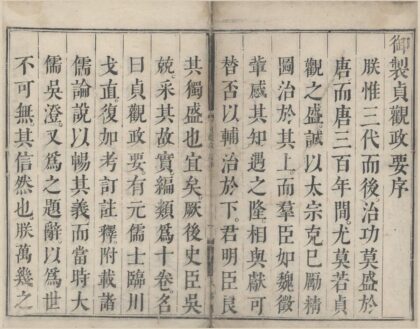 御製貞觀政要序
朕惟三代而後治功莫盛於
唐而唐三百年間尤莫若貞
觀之盛誠以太宗克已勵精
圖治於其上而羣臣如魏徵
輩感其知遇之隆相與獻可
替否以輔治於下君明臣良
其獨盛也宜矣厥後史臣吳
兢采其故實編類爲十卷名
曰貞觀政要有元儒士臨川
戈直復加考訂註釋附載諸
儒論說以暢其義而當時大
儒吳澄又爲之題辭以爲世
不可無其信然也朕萬幾之